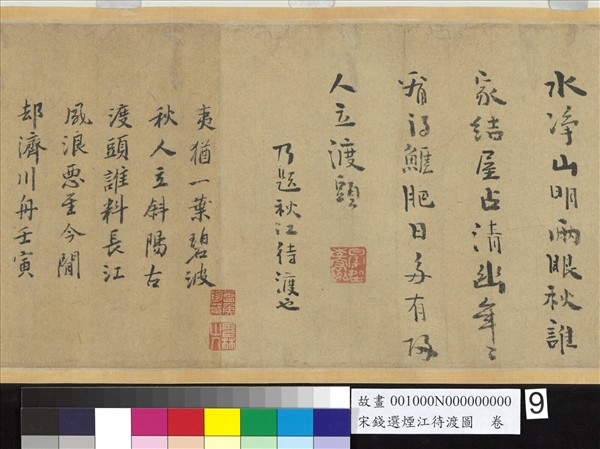 水淨山明兩眼秋誰
家結屋占清幽年〻
看得鱸肥日有歸
人立渡頭
乃題秋江待渡也
夷猶一葉碧波
秋人立斜陽古
渡頭誰料長江
風浪惡至今閒
却濟川舟壬寅
故畫 001000N000000000
宋錢選煙江待渡圖 卷
9